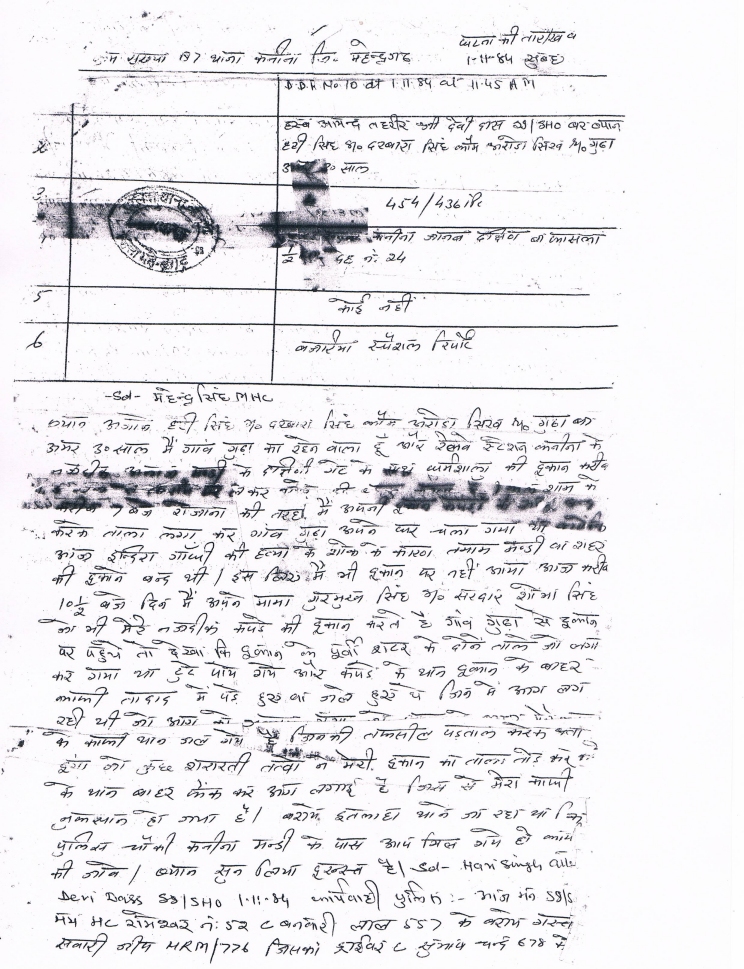 घटना की तारीख व
संख्या 187 थाना कनीना जि. महेन्द्रगढ़ 1-11-84 सुबह
D.D.R No 10 dt 1.11.84 at 11.45 AM
2
हस्ब आमद तहरीर श्री देवी दास SI/SHO बर ब्यान
हरी सिंह s/o दरबारा सिंह कौम अरोडा सिख r/o गुढा
साल
3
454/436 IPC
4
कनीना जानब दक्षिण बा फासला
1/2 नं: 24
5
कोई नहीं
6
बजरिया स्पैशल रिपोर्ट
-Sd- महेन्द्र सिंह MHC
ब्यान अजाने हरी सिंह s/o दरबारा सिंह कौम अरोडा सिख r/o गुढा बा
उमर 30 साल मैं गांव गुढा का रहने वाला हूँ और रेलवे स्टेशन कनीना के
के दक्षिणी गेट के धर्मशाला की दुकान करीब
शाम के
7 बजे रोजाना की तरह मैं अपनी
करके ताला लगा कर गांव गुढा अपने घर चला गया था
आज इन्दिरा गाँधी की हत्या के शोक के कारण तमाम मन्डी वा शहर
की दुकानें बन्द थी / इस लिए मैं भी दुकान पर नहीं आया आज करीब
10 1/2 बजे दिन मैं अपने मामा गुरमुख सिंह s/o सरदार शोभा सिंह
जो भी मेरे नजदीक कपडे की दुकान करते है गांव गुढा से दुकान
पर पहुँचे तो देखा कि दुकान के पूर्वी शटर के दोनों ताले जो लगा
कर गया था टुटे पाये गये और कपडे के थान दुकान के बाहर
काफी तादाद में पडे हुए वा जले हुए थे जिन में आग लग
रही थी जो आग को
के काफी थान जल गये है जिनकी तफसील पड़ताल करके बता
दूंगा जो कुछ शरारती तत्वों ने मेरी दुकान का ताला तोड़ कर
के थान बाहर फेंक कर आग लगाई है जिस से मेरा काफी
नुकसान हो गया है / बराये इतलाह थाने जा रहा था कि
पुलिस चौंकी कनीना मन्डी के पास आप मिल गये हो कार्य
की जावे / ब्यान सुन लिया दुरुस्त है / Sd- Hari Singh
Devi Dass SI/SHO 1.11.84 कार्यवाही पुलिस :- आज मन SI/S
मय HC रामेश्वर नं: 52 C बनवारी लाल 557 के बराये गस्त
सवारी जीप HRM/776 जिसका ड्राईवर C चन्द 678 है